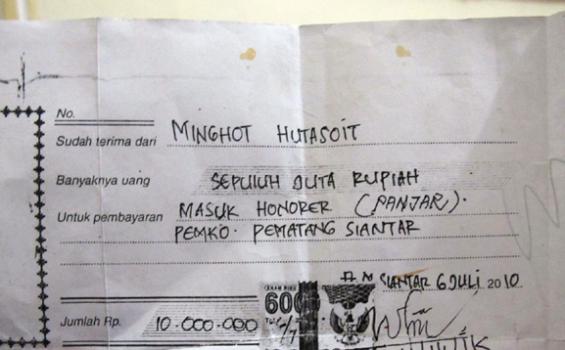 No.
Sudah terima dari MINGHOT HUTASOIT
Banyaknya uang SEPULUH JUTA RUPIAH
Untuk pembayaran MASUK HONORER (PANJAR).
PEMKO. PEMATANG SIANTAR
SIANTAR 6 JULI 2010.
600
Jumlah Rp. 10.000.000